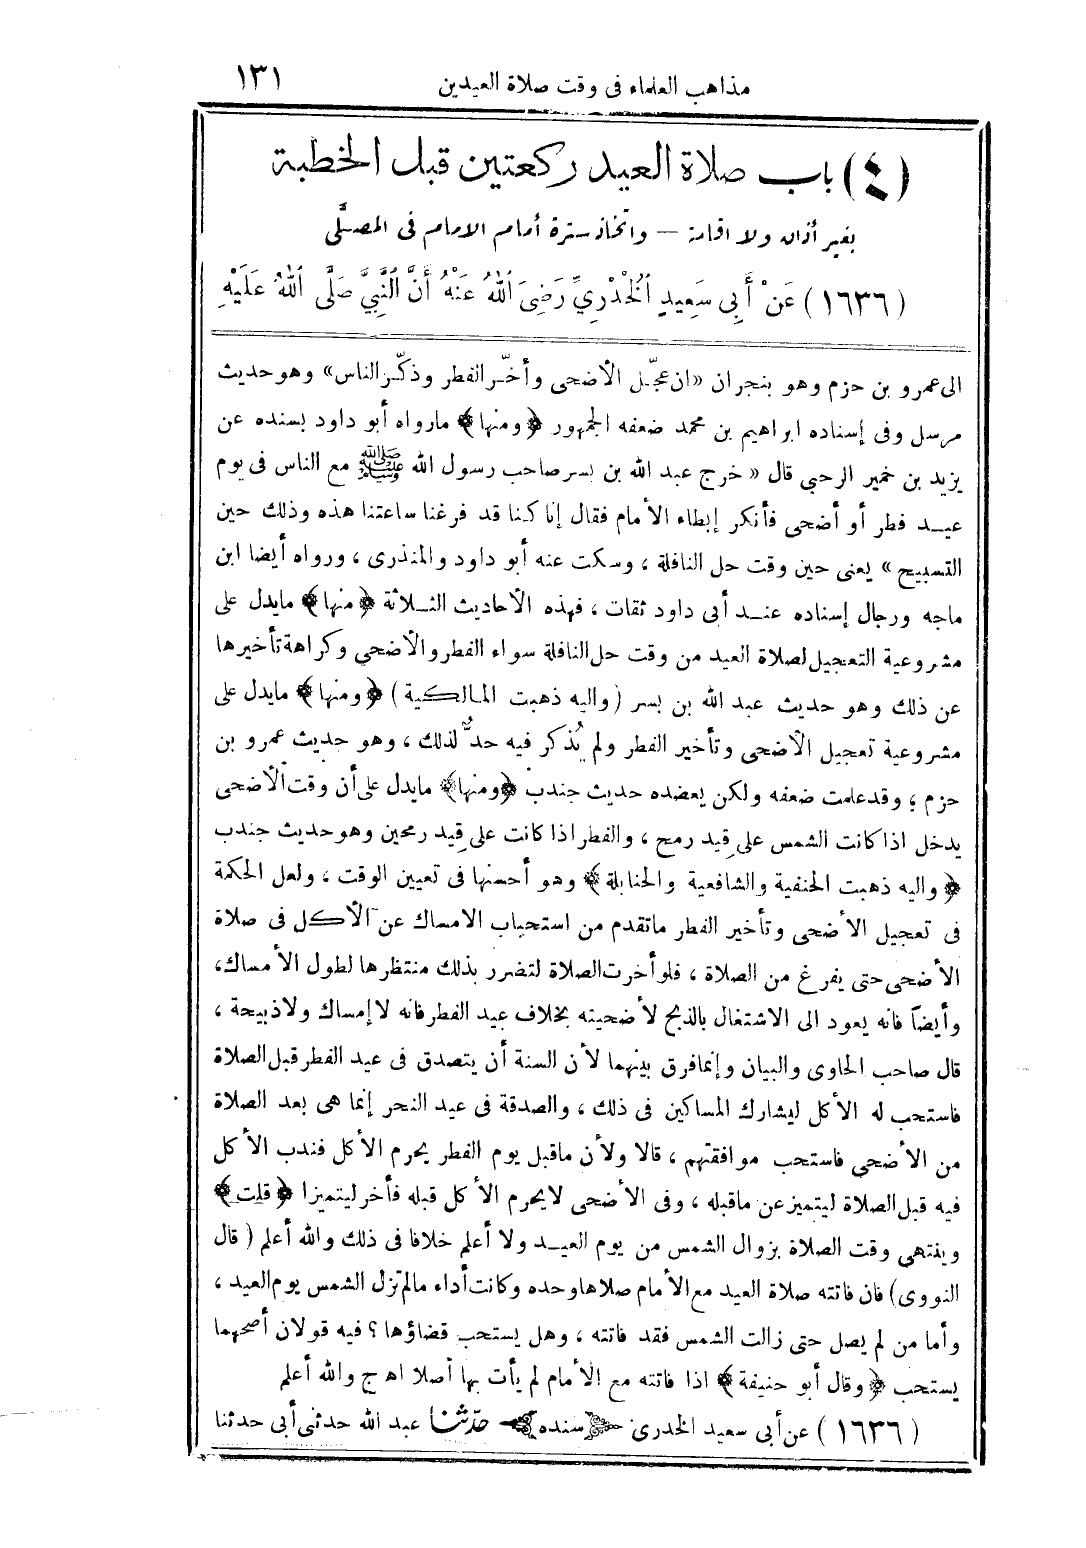 مذاهب العلماء فى وقت صلاة العيدين ١٣١
(٤) باب صلاة العيد ركعتين قبل الخطبة
بغير أذان ولا اقامة – واتخاذ سترة أمام الامام فى المصلَّى
(١٦٣٦) عَنْ أَبِى سَعِيدٍ الْخُدْرِيِّ رَضِىَ اللهُ عَنْهُ أَنَّ النَّبِيَّ صَلَّى اللهُ عَلَيْهِ
الى عمرو بن حزم وهو بنجران «ان عجّل الأضحى وأخّر الفطر وذكّر الناس» وهو حديث
مرسل وفى إسناده ابراهيم بن محمد ضعفه الجمهور ﴿ومنها﴾ مارواه أبو داود بسنده عن
يزيد بن خمير الرحبى قال « خرج عبد الله بن بسر صاحب رسول الله ﷺ مع الناس فى يوم
عيد فطر أو أضحى فأنكر إبطاء الأمام فقال إنا كنا قد فرغنا ساعتنا هذه وذلك حين
التسبيح » يعنى حين وقت حل النافلة ، وسكت عنه أبو داود والمنذرى ، ورواه أيضا ابن
ماجه ورجال إسناده عند أبى داود ثقات ، فهذه الأحاديث الثلاثة ﴿منها﴾ مايدل على
مشروعية التعجيل لصلاة العيد من وقت حل النافلة سواء الفطر والأضحى وكراهة تأخيرها
عن ذلك وهو حديث عبد الله بن بسر (واليه ذهبت المالكية) ﴿ومنها﴾ مايدل على
مشروعية تعجيل الأضحى وتأخير الفطر ولم يُذكر فيه حدٌّ لذلك ، وهو حديث عمرو بن
حزم ؛ وقد علمت ضعفه ولكن يعضده حديث جندب ﴿ومنها﴾ مايدل على أن وقت الأضحى
يدخل اذا كانت الشمس على قِيد رمح ، والفطر اذا كانت على قِيد رمحين وهو حديث جندب
﴿واليه ذهبت الحنفية والشافعية والحنابلة﴾ وهو أحسنها فى تعيين الوقت ، ولعل الحكمة
فى تعجيل الأضحى وتأخير الفطر ماتقدم من استحباب الامساك عن الأكل فى صلاة
الأضحى حتى يفرغ من الصلاة ، فلو أخرت الصلاة لتضرر بذلك منتظرها لطول الأمساك،
وأيضاً فانه يعود الى الاشتغال بالذبح لأضحيته بخلاف عيد الفطر فانه لا إمساك ولا ذبيحة ،
قال صاحب الحاوى والبيان وإنما فرق بينهما لأن السنة أن يتصدق فى عيد الفطر قبل الصلاة
فاستحب له الأكل ليشارك المساكين فى ذلك ، والصدقة فى عيد النحر إنما هى بعد الصلاة
من الأضحى فاستحب موافقتهم ، قالا ولأن ماقبل يوم الفطر يحرم الأكل فندب الأكل
فيه قبل الصلاة ليتميز عن ماقبله ، وفى الأضحى لايحرم الأكل قبله فأخر ليتميزا ﴿قلت﴾
وينتهى وقت الصلاة بزوال الشمس من يوم العيد ولا أعلم خلافا فى ذلك والله أعلم ( قال
النووى) فان فاتته صلاة العيد مع الأمام صلاها وحده وكانت أداء مالم تزل الشمس يوم العيد ،
وأما من لم يصل حتى زالت الشمس فقد فاتته ، وهل يستحب قضاؤها ؟ فيه قولان أصحهما
يستحب ﴿وقال أبو حنيفة﴾ اذا فاتته مع الأمام لم يأت بها أصلا اهـ ج والله أعلم
(١٦٣٦) عن أبى سعيد الخدرى سنده حدّثنا عبد الله حدثنى أبى حدثنا